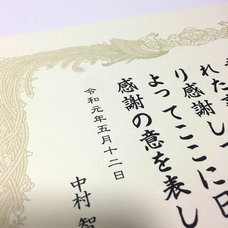 れた事
り感謝し
よってここに
感謝の意を表し
令和元年五月十二日
中村智